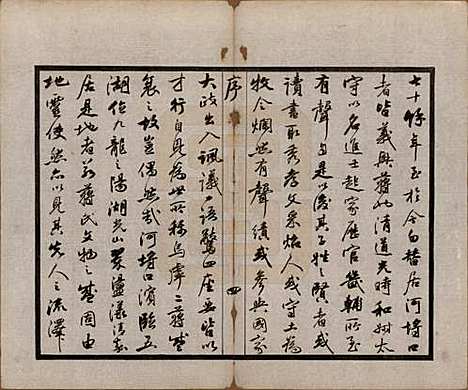 七十餘年至於今自昔居河塘口
者皆義興蔣姓清道光時和州太
守以名進士起家歷官畿輔所至
有聲自是以後其子姓之賢者或
讀書取秀孝文采炤人或守土為
牧令烱然有聲績或參與國家
序
四
大政出入諷議口語驚四座無皆以
才行自見為世所稱烏虖二蔣盛
衰之故豈偶然哉河塘口濱臨五
湖位九龍之陽湖光山翠盪漾清嘉
居是地者蔣氏文物之盛固由
地靈使然亦以見其先人之流澤